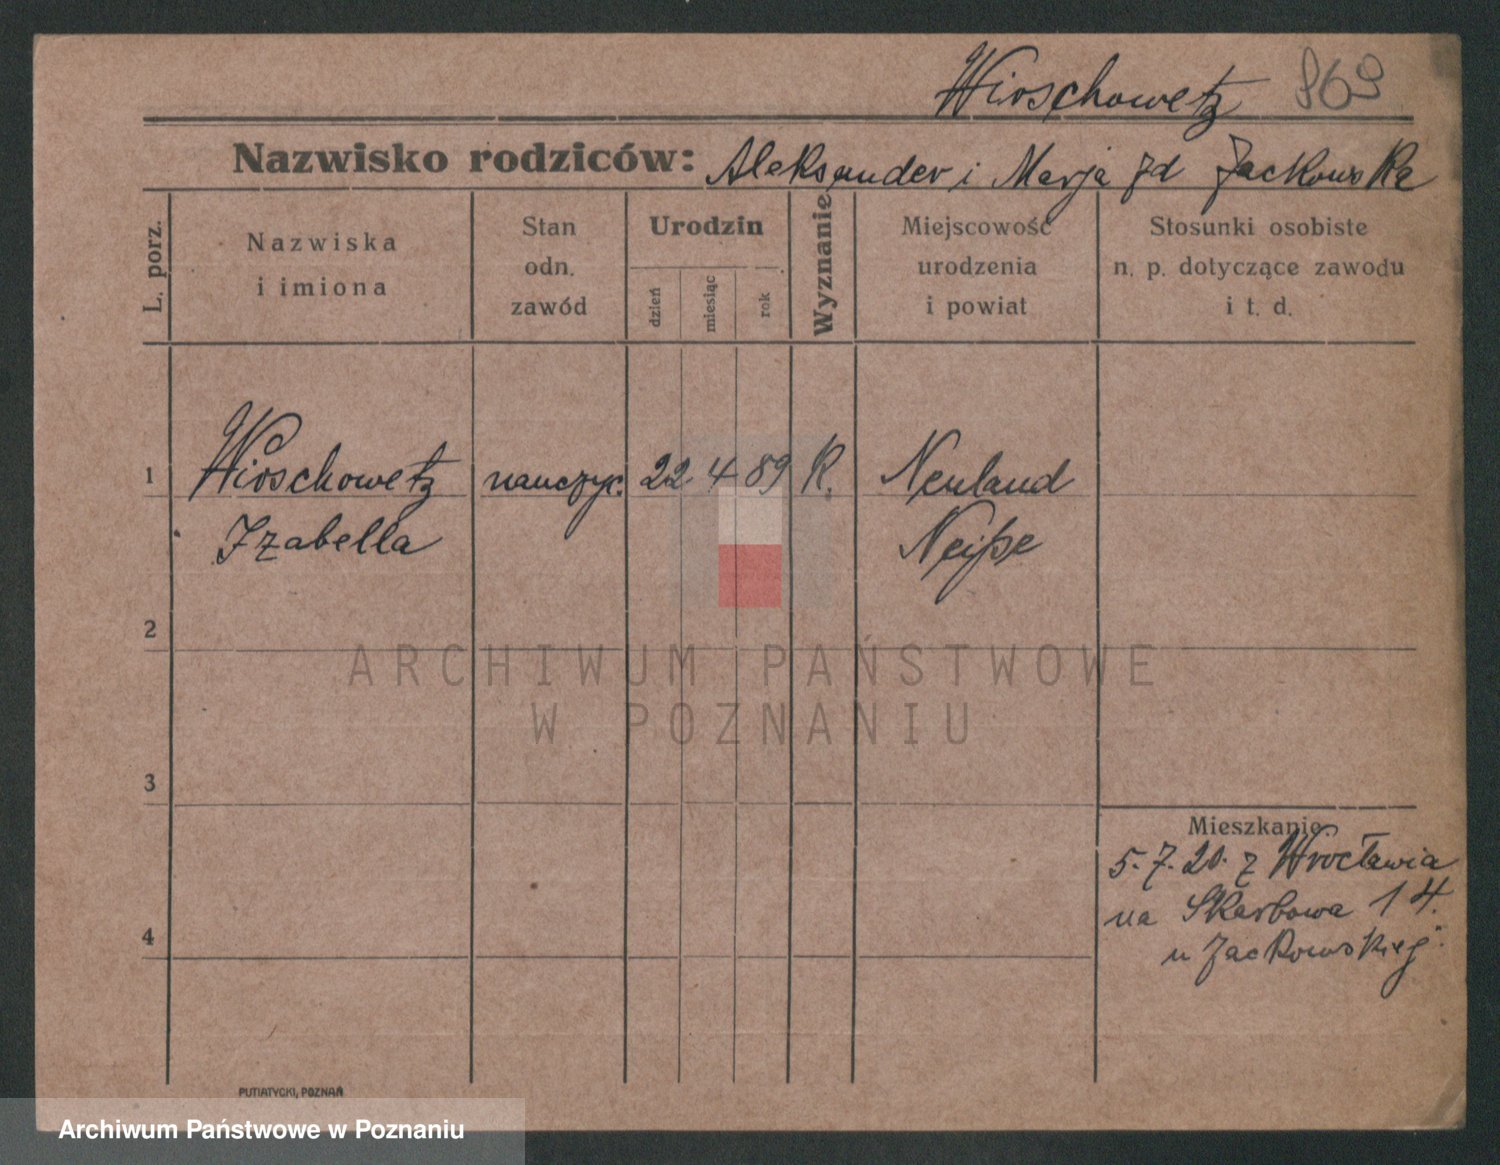 Wioschowetz 869
Nazwisko rodziców: Aleksander i Marja zd Jackowska
L. porz.
Nazwiska
i imiona
Stan
odn.
zawód
Urodzin
dzień
miesiąc
rok
Wyznanie
Miejscowość
urodzenia
i powiat
Stosunki osobiste
n. p. dotyczące zawodu
i t. d.
1 Wioschowetz nauczyc. 22 4 89 R. Neuland
Izabella Neiße
2
ARCHIWUM PAŃSTWOWE
W POZNANIU
3
Mieszkanie.
5.7.20. z Wrocławia
na Skarbowa 14.
4
u Jackowskiej.
PUTIATYCKI, POZNAŃ
Archiwum Państwowe w Poznaniu